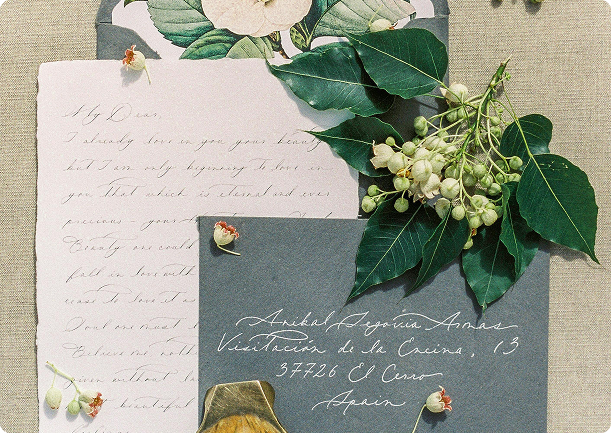 My Dear,
I already love in you your beauty,
but I am only beginning to love in
you that which is eternal and ever
precious – your
Beauty one could
fall in love with
cease to love it as
Soul one must l
Believe me noth
given without la
beautiful
Anibal Segovia Armas
Visitación de la Encina, 13
37726 El Cerro
Spain